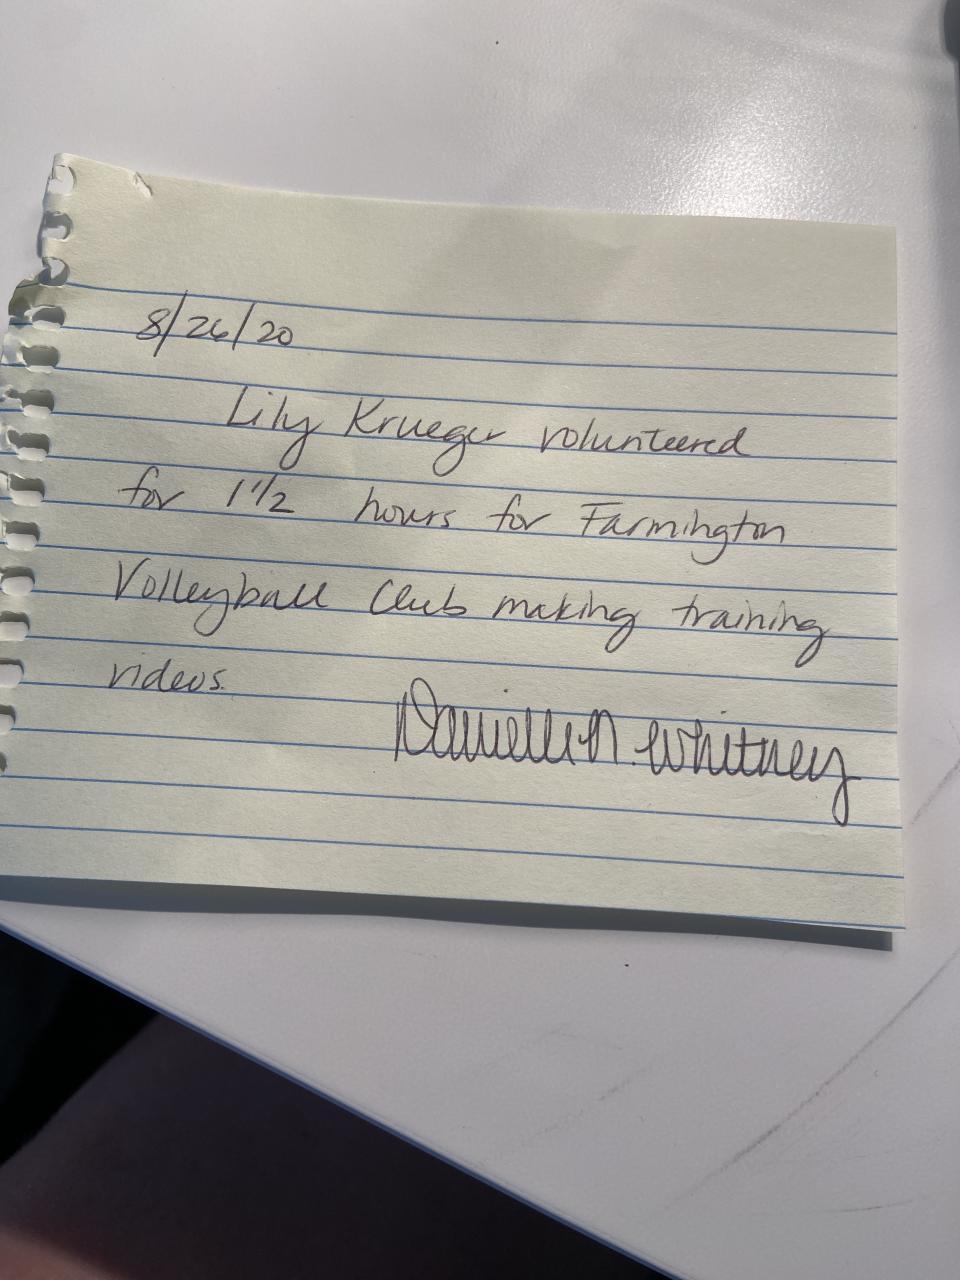 8/26/20
Lily Krueger volunteered
for 1 1/2 hours for Farmington
Volleyball Club making training
videos.
Danielle N. Whitney